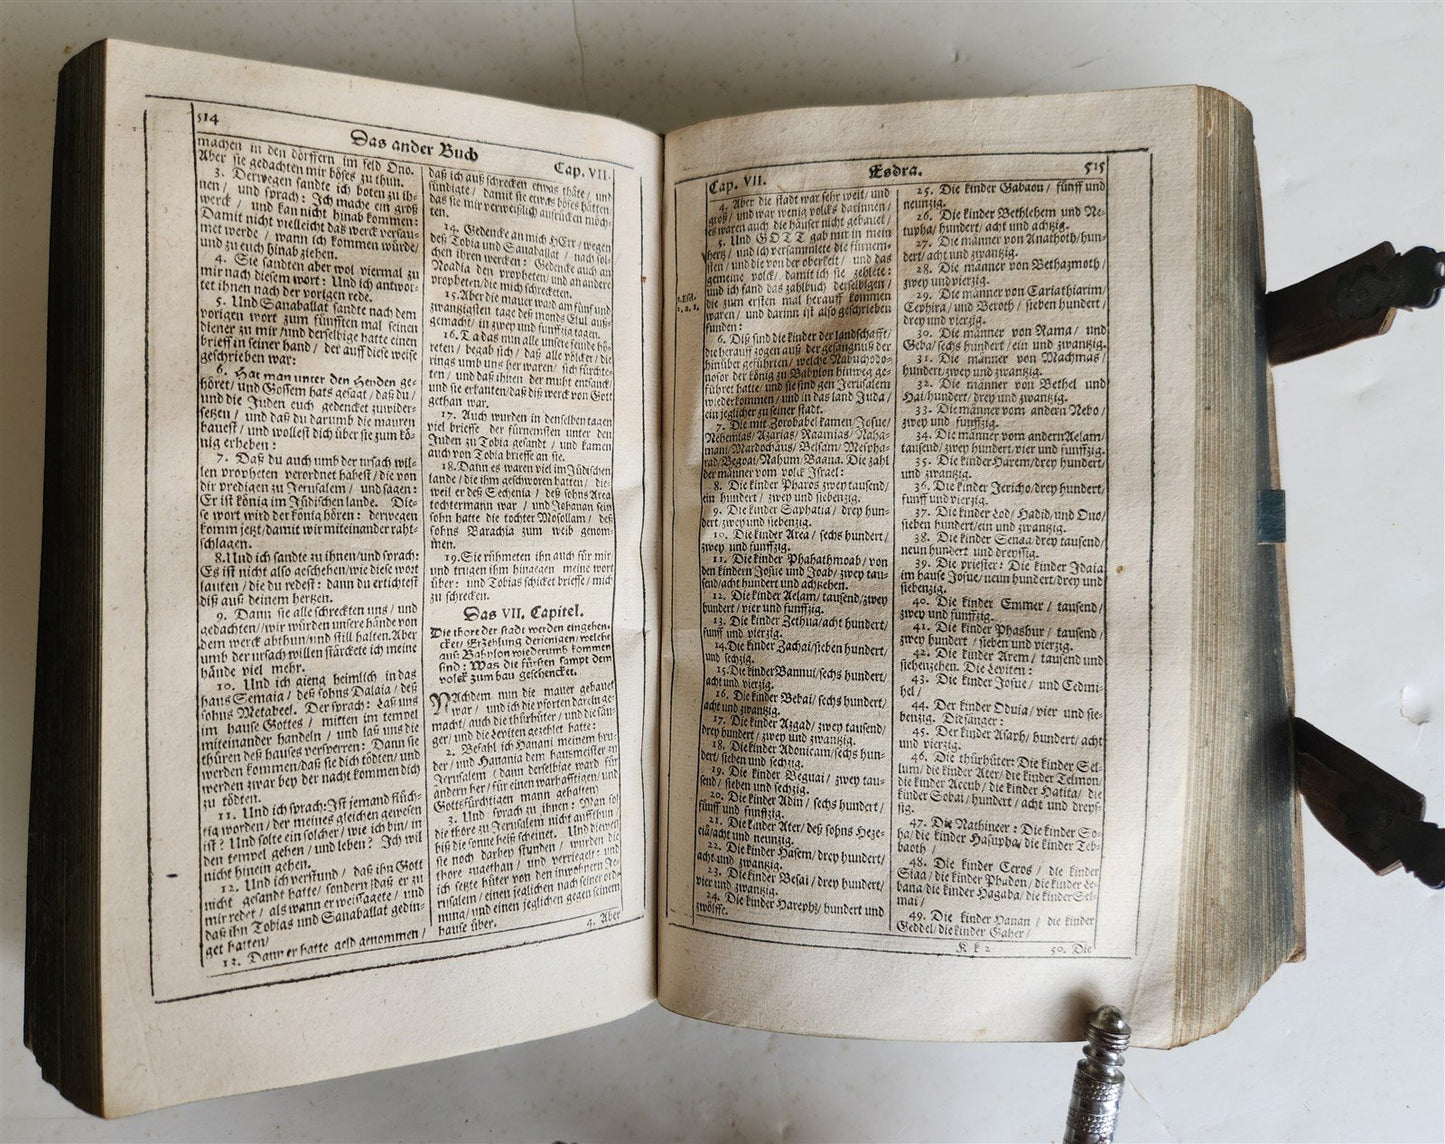 514
Das ander Buch
Cap. VII.
machen in den dörffern im feld Ono.
Aber sie gedachten mir böses zu thun.
3. Derwegen sandte ich boten zu ih-
nen / und sprach: Ich mache ein groß
werck / und kan nicht hinab kommen:
Damit nicht vielleicht das werck versau-
met werde / wann ich kommen würde/
und zu euch hinab ziehen.
4. Sie sandten aber wol viermal zu
mir nach diesem wort: Und ich antwor-
tet ihnen nach der vorigen rede.
5. Und Sanaballat sandte nach dem
vorigen wort zum fünfften mal seinen
diener zu mir / und derselbige hatte einen
brieff in seiner hand / der auff diese weise
geschrieben war:
6. Hat man unter den Heyden ge-
höret/ und Gossem hats gesagt / daß du /
und die Juden euch gedencket zuwider-
setzen / und daß du darumb die mauren
bauest / und wollest dich über sie zum kö-
nig erheben:
7. Daß du auch umb der ursach wil-
len propheten verordnet habest / die von
dir predigen zu Jerusalem / und sagen:
Er ist könig im Jüdischen lande. Die-
se wort wird der könig hören: derwegen
komm jetzt/damit wir miteinander raht-
schlagen.
8. Und ich sandte zu ihnen/und sprach:
Es ist nicht also geschehen/wie diese wort
lauten / die du redest: dann du ertichtest
diß auß deinem hertzen.
9. Dann sie alle schreckten uns / und
gedachten//wir würden unsere hände von
dem werck abthun/und still halten. Aber
umb der ursach willen stärckete ich meine
hände viel mehr.
10. Und ich gieng heimlich in das
haus Semaia / deß sohns Dalaia / deß
sohns Metabeel. Der sprach: Laß uns
im hause Gottes / mitten im tempel
miteinander handeln / und laß uns die
thüren deß hauses versperren: Dann sie
werden kommen/daß sie dich tödten/ und
werden zwar bey der nacht kommen dich
zu tödten.
11. Und ich sprach: Ist jemand flüch-
tig worden / der meines gleichen gewesen
ist? Und solte ein solcher / wie ich bin/ in
den tempel gehen / und leben? Ich wil
nicht hinein gehen.
12. Und ich verstund / daß ihn Gott
nicht gesandt hatte/ sondern daß er zu
mir redet / als wann er weissagete / und
daß ihn Tobias und Sanaballat gedin-
get hatten/
13. Dann er hatte geld genommen /
daß ich auß schrecken etwas thäte / und
sündigte / damit sie etwas böses hätten/
das sie mir verweißlich auffrücken möch-
ten.
14. Gedencke an mich HErr / wegen
deß Tobia und Sanaballat / nach sol-
chen ihren wercken: Gedencke auch an
Noadia den propheten/ und an andere
propheten/die mich schreckten.
15. Aber die mauer ward am fünf und
zwantzigsten tage deß monds Elul auß-
gemacht/ in zwey und funfftzig tagen.
16. Da das nun alle unsere feinde hö-
reten / begab sich / daß alle völcker / die
rings umb uns her waren/ sich fürchte-
ten / und daß ihnen der muht entsanck/
und sie erkanten/daß diß werck von Gott
gethan war.
17. Auch wurden in denselben tagen
viel brieffe der fürnemsten unter den
Juden zu Tobia gesandt / und kamen
auch von Tobia brieffe an sie.
18. Dann es waren viel im Jüdischen
lande / die ihm geschworen hatten / die-
weil er deß Sechenia / deß sohns Area
tochtermann war / und Johanan sein
sohn hatte die tochter Mosollam / deß
sohns Barachia zum weib genom-
men.
19. Sie rühmeten ihn auch für mir
und trugen ihm hinaegen meine wort
über: und Tobias schicket brieffe / mich
zu schrecken.
Das VII. Capitel.
Die thore der stadt werden eingehen-
cket/ Erzehlung derienigen/welche
auß Babylon wiederumb kommen
sind: Was die fürsten sampt dem
volck zum bau geschencket.
NAchdem nun die mauer gebauet
war / und ich die pforten darein ge-
macht/ auch die thürhüter / und die sän-
ger/ und die Leviten gezehlet hatte:
2. Befahl ich Hanani meinem bru-
der / und Hanania dem hausmeister zu
Jerusalem ( dann derselbige ward für
andern her / für einen warhafftigen/ und
Gottsfürchtigen mann gehalten)
3. Und sprach zu ihnen: Man sol
die thore zu Jerusalem nicht auffthun/
biß die sonne heiß scheinet. Und dieweil
sie noch darbey stunden / wurden die
thore zugethan / und verriegelt: und
ich setzte hüter von den inwohnern Je-
rusalem / einen jeglichen nach seiner ord-
nung/ und einen jeglichen gegen seinem
hause über.
4. Aber
Cap. VII.
Esdra.
515
4. Aber die stadt war sehr weit/ und
groß / und war wenig volcks darinnen/
es waren auch die häuser nicht gebauet/
5. Und GOTT gab mir in mein
hertz / und ich versammlete die fürnem-
sten / und die von der oberkeit / und das
gemeine volck/ damit ich sie zehlete:
und ich fand das zahlbuch derselbigen /
die zum ersten mal herauff kommen
waren / und darinn ist also geschrieben
funden:
6. Diß sind die kinder der landschafft/
die herauff zogen auß der gefängnuß der
hinüber geführten/ welche Nabuchodo-
nosor der könig zu Babylon hinweg ge-
führet hatte/ und sie sind gen Jerusalem
wiederkommen / und in das land Juda /
ein jeglicher zu seiner stadt.
7. Die mit Zorobabel kamen Josue/
Nehemias/ Azarias/ Raamias/ Naha-
mani/Mardochäus/ Belsam/ Mespha-
rad/Begoai/Nahum/Baana. Die zahl
der männer vom volck Israel:
8. Die kinder Pharos zwey tausend/
ein hundert / zwey und siebenzig.
9. Die kinder Saphatia / drey hun-
dert zwey und siebenzig.
10. Die kinder Area / sechs hundert/
zwey und funffzig.
11. Die kinder Phahathmoab/ von
den kindern Josue und Joab/ zwey tau-
send/acht hundert und achtzehen.
12. Die kinder Aelam/ tausend/zwey
hundert / vier und funffzig.
13. Die kinder Zethua/acht hundert/
funff und vierzig.
14. Die kinder Zachai/sieben hundert/
und sechzig.
15. Die kinder Bannui/ sechs hundert/
acht und vierzig.
16. Die kinder Bebai/ sechs hundert/
acht und zwantzig.
17. Die kinder Azgad/ zwey tausend/
drey hundert/ zwey und zwantzig.
18. Die kinder Adonicam/sechs hun-
dert/ sieben und sechzig.
19. Die kinder Beguai / zwey tau-
send / sieben und sechzig.
20. Die kinder Adin / sechs hundert /
fünff und funffzig.
21. Die kinder Ater/ deß sohns Heze-
ciä/acht und neunzig.
22. Die kinder Hasem/ drey hundert/
acht und zwantzig.
23. Die kinder Besai / drey hundert/
vier und zwantzig.
24. Die kinder Hareph/ hundert und
zwölffe.
25. Die kinder Gabaon/ fünff und
neunzig.
26. Die kinder Bethlehem und Ne-
tupha/ hundert/ acht und achtzig.
27. Die männer von Anathoth/hun-
dert/ acht und zwantzig.
28. Die männer von Bethazmoth/
zwey und vierzig.
29. Die männer von Cariathiarim/
Cephira/ und Beroth / sieben hundert/
drey und vierzig.
30. Die männer von Rama / und
Geba/ sechs hundert / ein und zwantzig.
31. Die männer von Machmas/
hundert/zwey und zwantzig.
32. Die männer von Bethel und
Hai/hundert/ drey und zwantzig.
33. Die männer vom andern Nebo/
zwey und funffzig.
34. Die männer vom andern Aelam/
tausend/ zwey hundert/vier und funffzig.
35. Die kinder Harem/drey hundert/
und zwantzig.
36. Die kinder Jericho/drey hundert/
funff und vierzig.
37. Die kinder Lod/ Hadid/und Ono/
sieben hundert/ein und zwantzig.
38. Die kinder Senaa/drey tausend/
neun hundert und dreyssig.
39. Die priester: Die kinder Idaia
im hause Josue/ neun hundert/drey und
siebenzig.
40. Die kinder Emmer / tausend/
zwey und funffzig.
41. Die kinder Phashur / tausend /
zwey hundert / sieben und vierzig.
42. Die kinder Arem/ tausend und
siebenzehen. Die Leviten:
43. Die kinder Josue/ und Cedmi-
hel/
44. Der kinder Oduia/ vier und sie-
benzig. Die sänger:
45. Der kinder Asaph/ hundert/ acht
und vierzig.
46. Die thürhüter: Die kinder Sel-
lum/ die kinder Ater/ die kinder Telmon/
die kinder Accub/ die kinder Hatita/ die
kinder Sobai / hundert / acht und dreys-
sig.
47. Die Nathineer: Die kinder So-
ha/ die kinder Hasupha/ die kinder Teb-
baoth /
48. Die kinder Ceros / die kinder
Siaa / die kinder Phadon/ die kinder Le-
bana/ die kinder Hagaba/ die kinder Sel-
mai /
49. Die kinder Hanan / die kinder
Geddel/ die kinder Gaher/
K k 2
50. Die